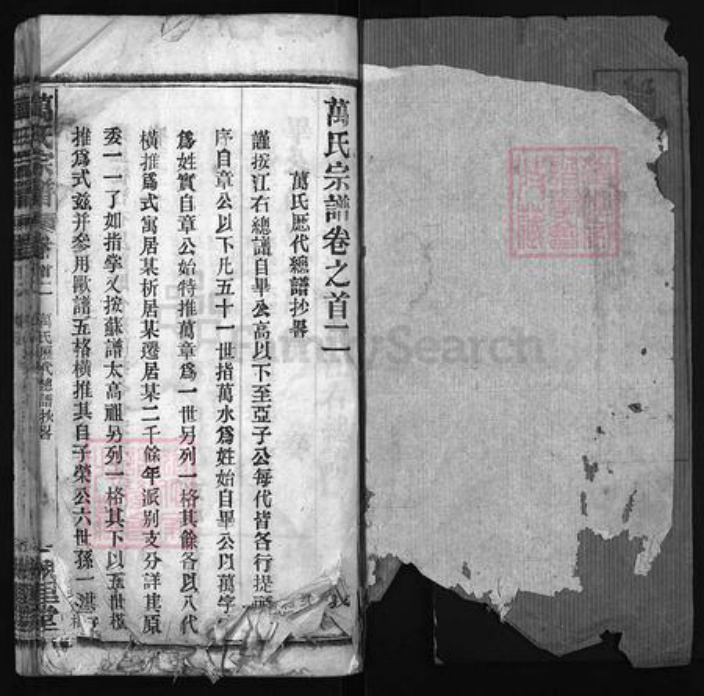 萬氏宗譜卷之首二
萬氏歷代總譜抄畧
謹按江右總譜自畢公高以下至亞子公每代皆各行提
序自章公以下凡五十一世指萬水爲姓始自畢公以萬字
爲姓實自章公始特推萬章爲一世另列一格其餘各以八代
橫推爲式寓居某析居某遷居某二千餘年派別支分詳其原
委一一了如指掌又按蘇譜太高祖另列一格其下以五世橫
推爲式兹并參用歐譜五格橫推其自子榮公六世孫一
萬氏宗譜 卷首二 萬氏歷代總譜抄畧
FamilySearch